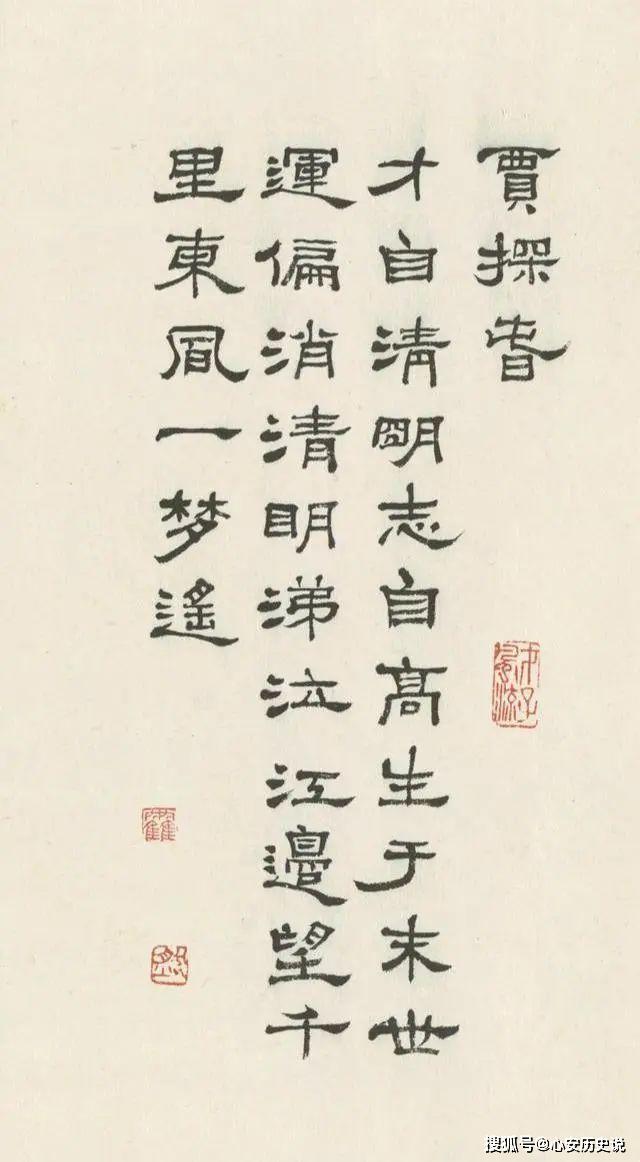 賈探春
才自清明志自高生于末世
運偏消清明涕泣江邊望千
里東風一梦遙
搜狐号@心安历史说